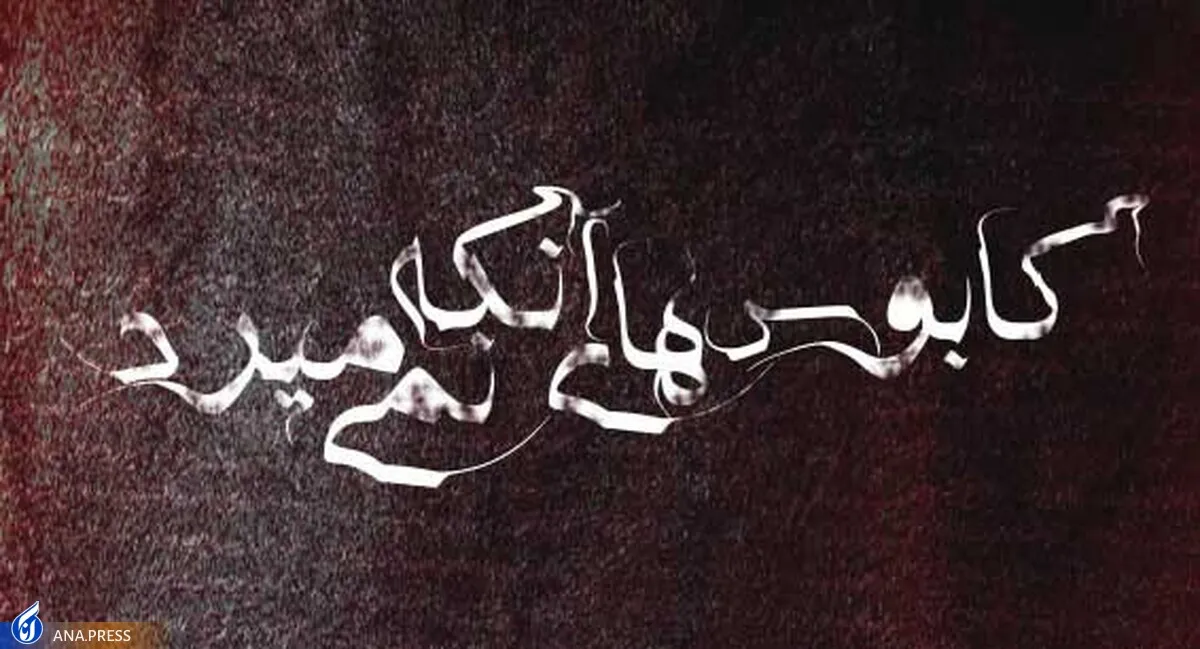 کابوس‌های آنکه نمی‌میرد
ANA.PRESS